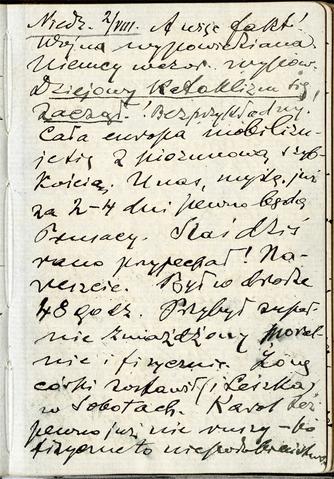 Niedz. 2/VIII. A więc fakt!
Wojna wypowiedziana.
Niemcy wczor. wypow.
Dziejowy kataklizm się
zaczął! Bezprzykładny.
Cała europa mobilizu-
je się z piorunową szyb-
kością. U nas, myślę, już
za 2-4 dni pewno będą
Prusacy. Staś dziś
rano przyjechał! Na-
reszcie. Był w drodze
48 godz. Przybył zupeł-
nie zmiażdżony moral-
nie i fizycznie. Żonę
córki zostawił (i Leszka)
w Sobotach. Karol też
pewno już nie ruszy - bo
fizyczne to niepodobieństwo